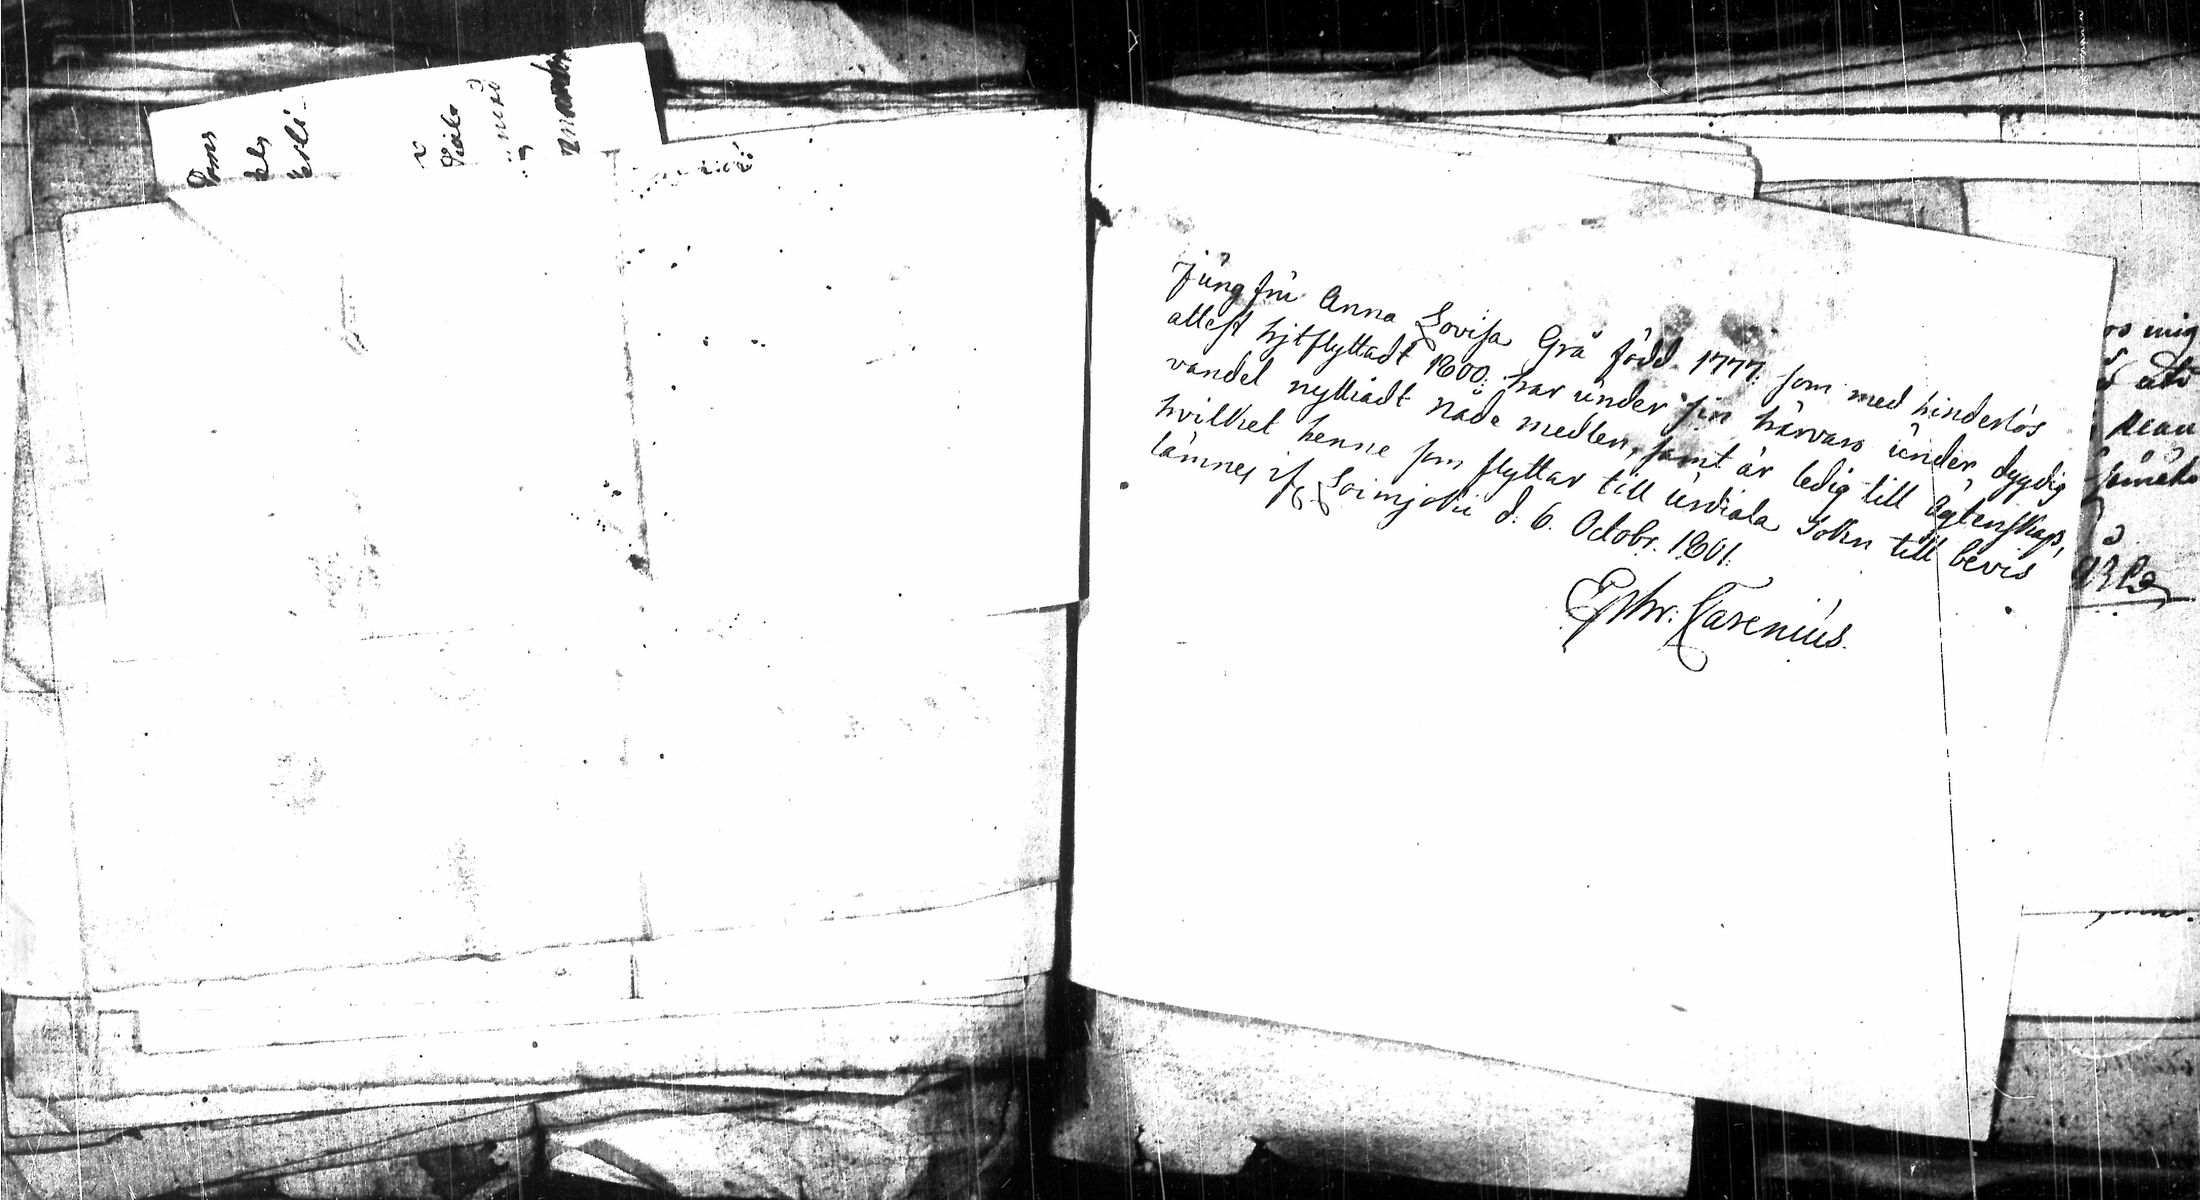 Jungfru Anna Lovisa Grå född. 1777. som med hinderlös
attest hjtflyttadt 1800. har under sin härvaro under dygdig
vandel nyttiadt nåde medlen, samt är ledig till Ägtenskap,
hvilket henne som flyttar till Urdiala Sokn till bevis
lämnes if Loimjoki d. 6. Octobr. 1801.
Ephr: Carenius.
os mig